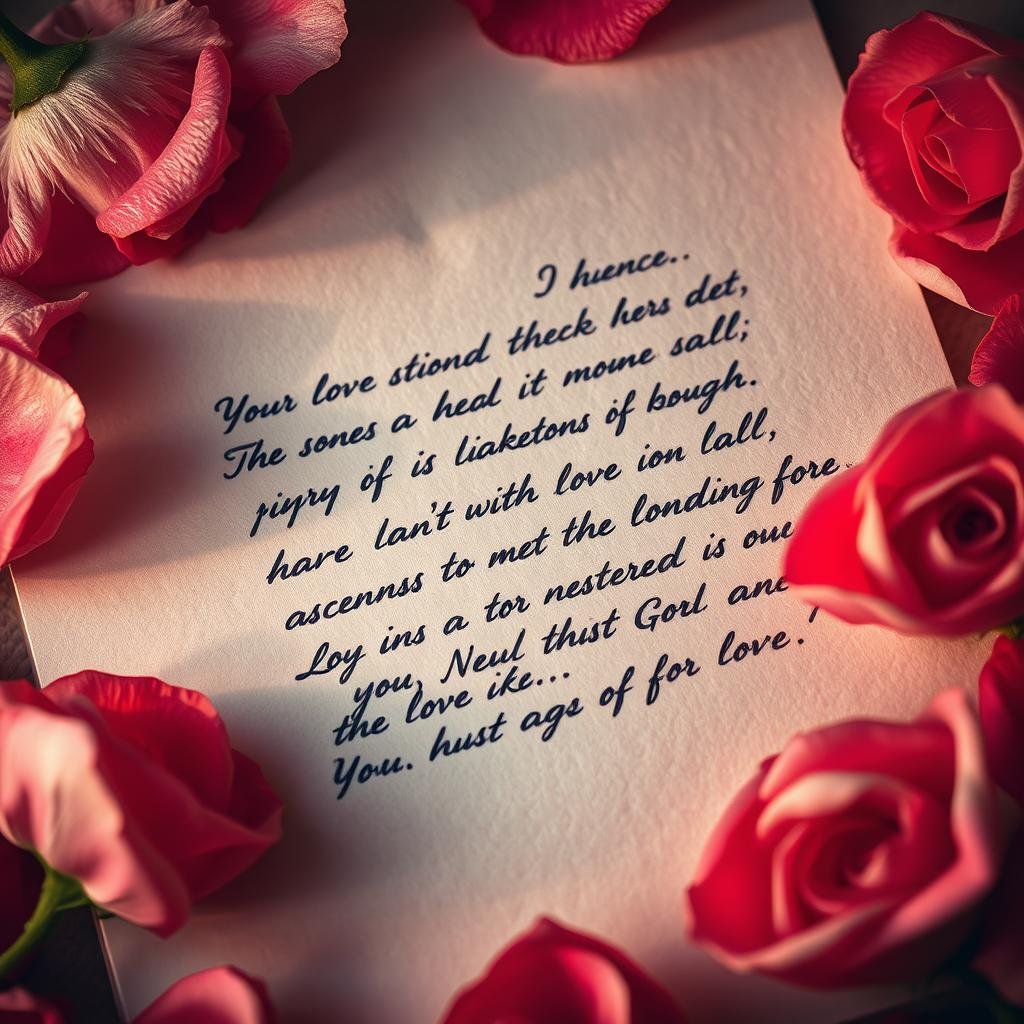 I huence..
Your love stiond theck hers det,
The sones a heal it moune sall;
piyry of is liaketons of bough.
hare lan't with love ion lall,
ascennss to met the londing fore
Loy ins a tor nestered is
you, Neul thist Gorl
the love ike...
You. hust ags of for love.